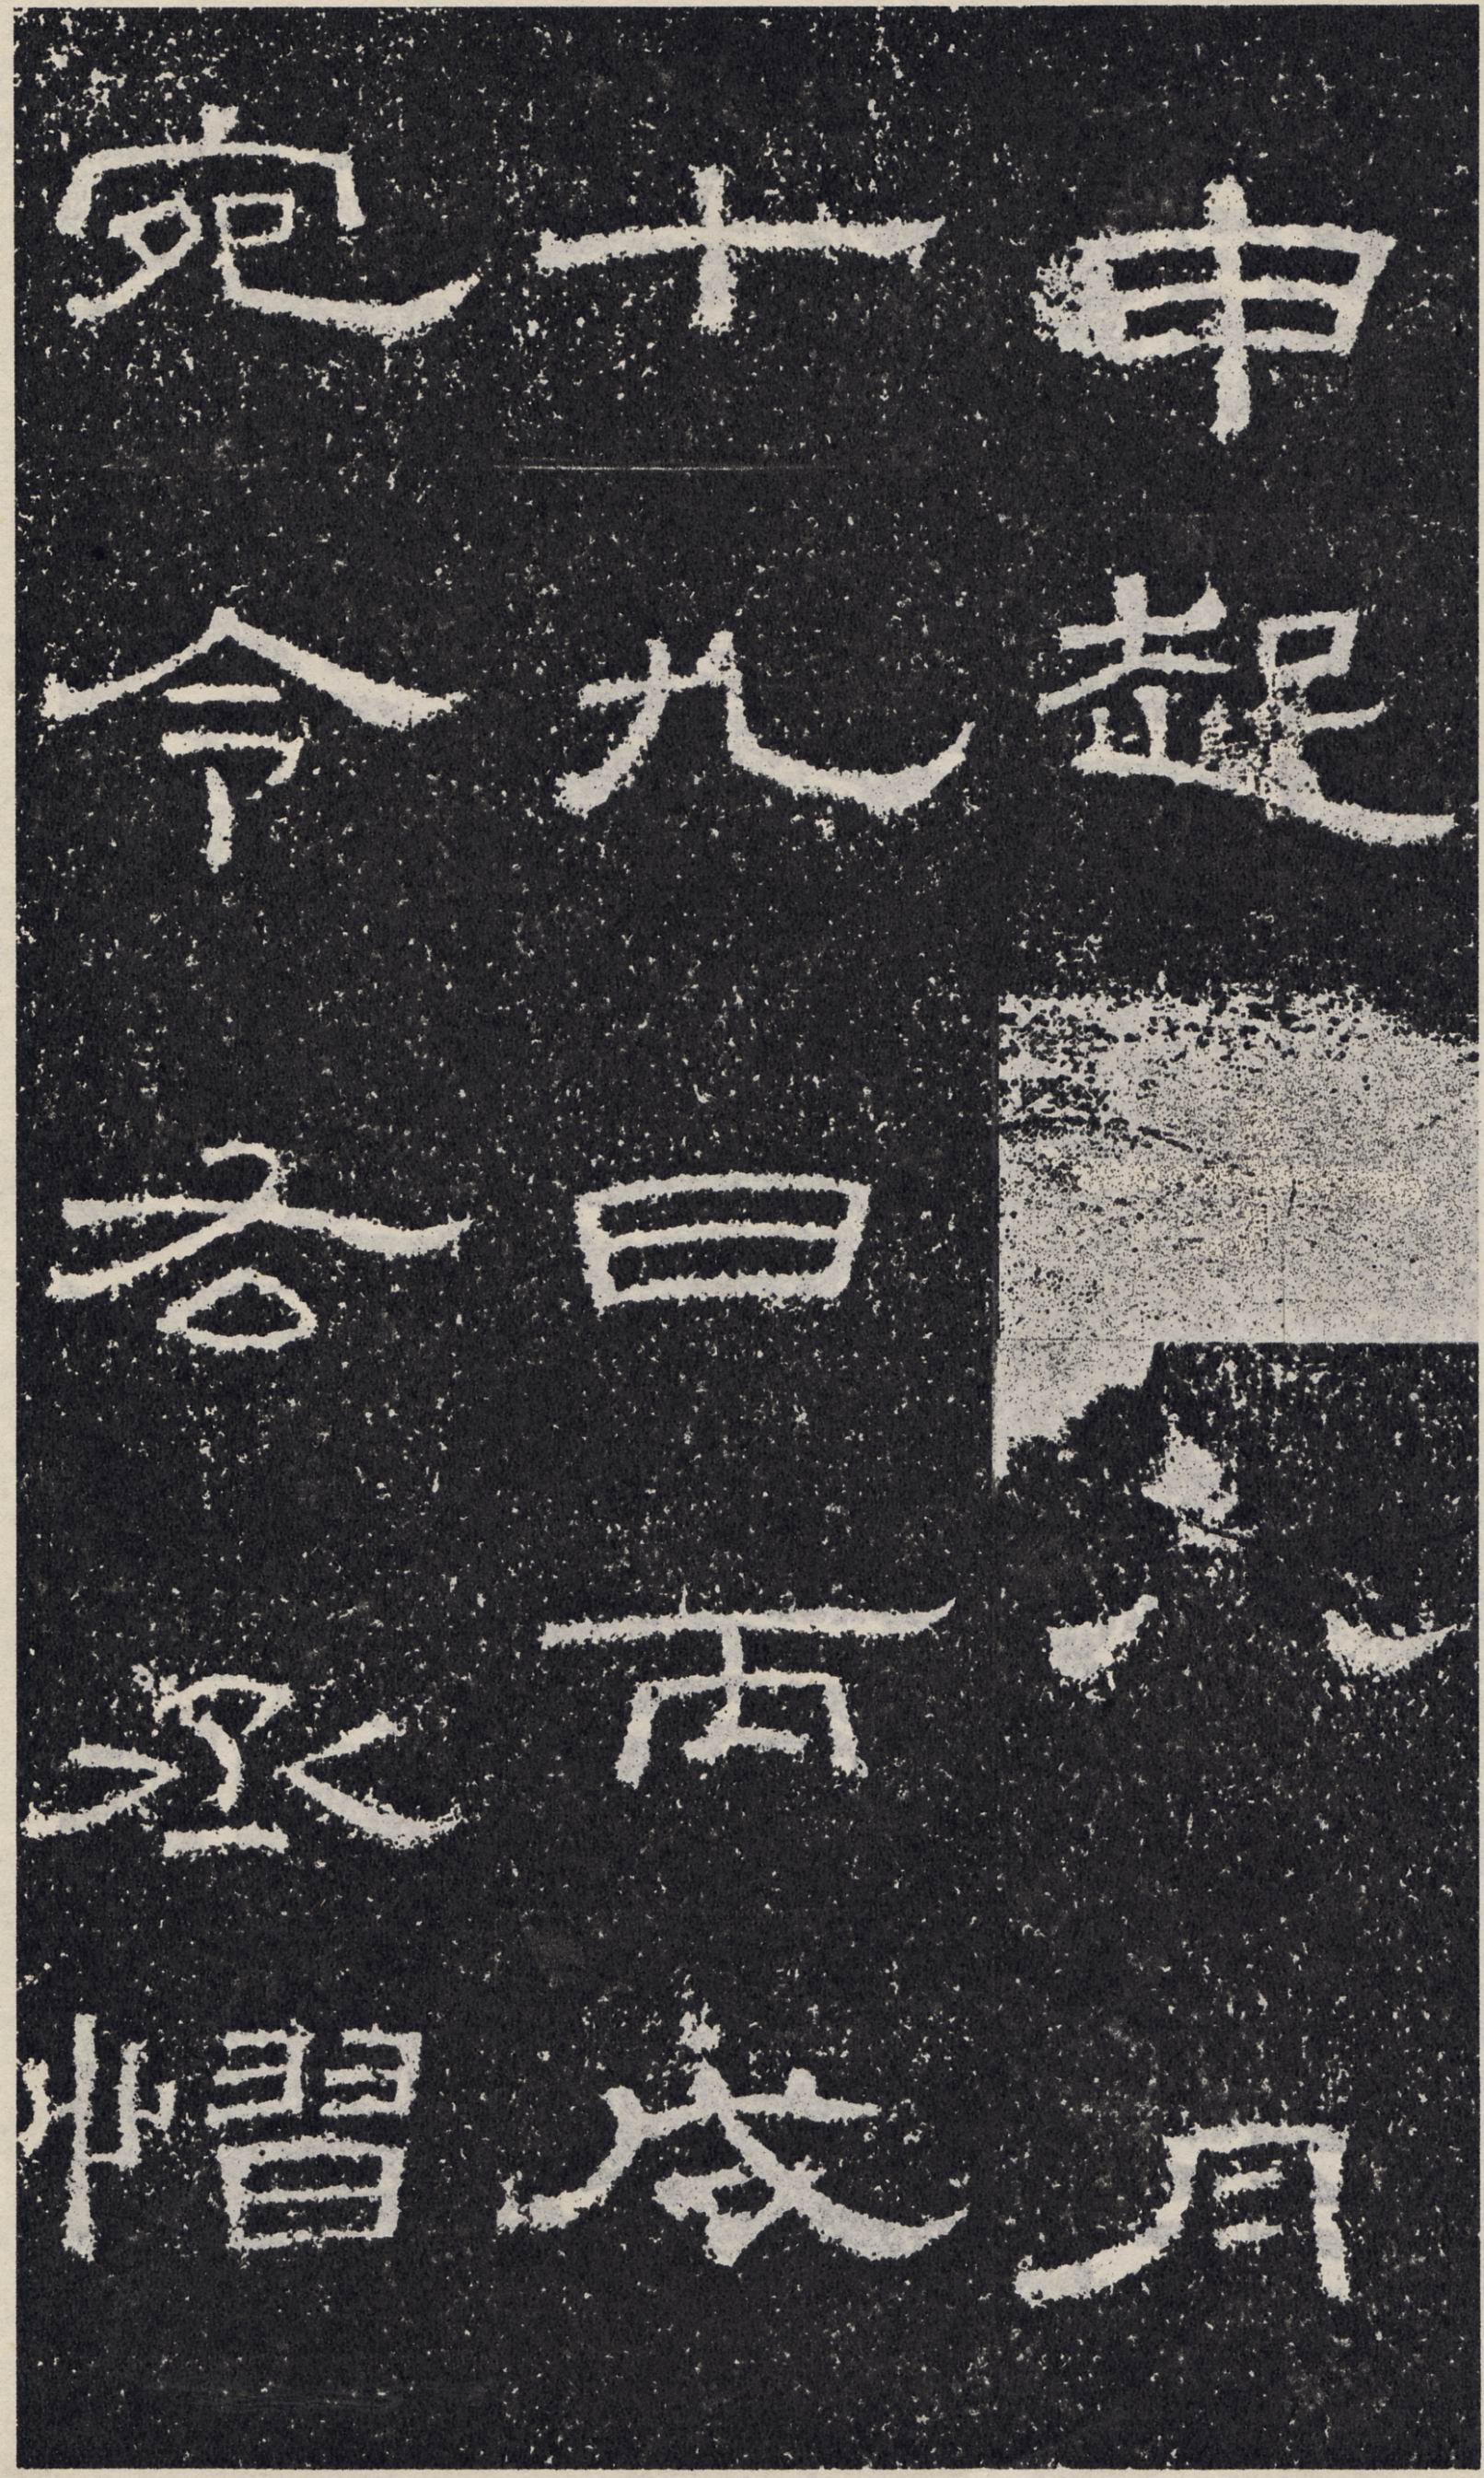 申起八月
十九日丙戌
宛令右丞慴